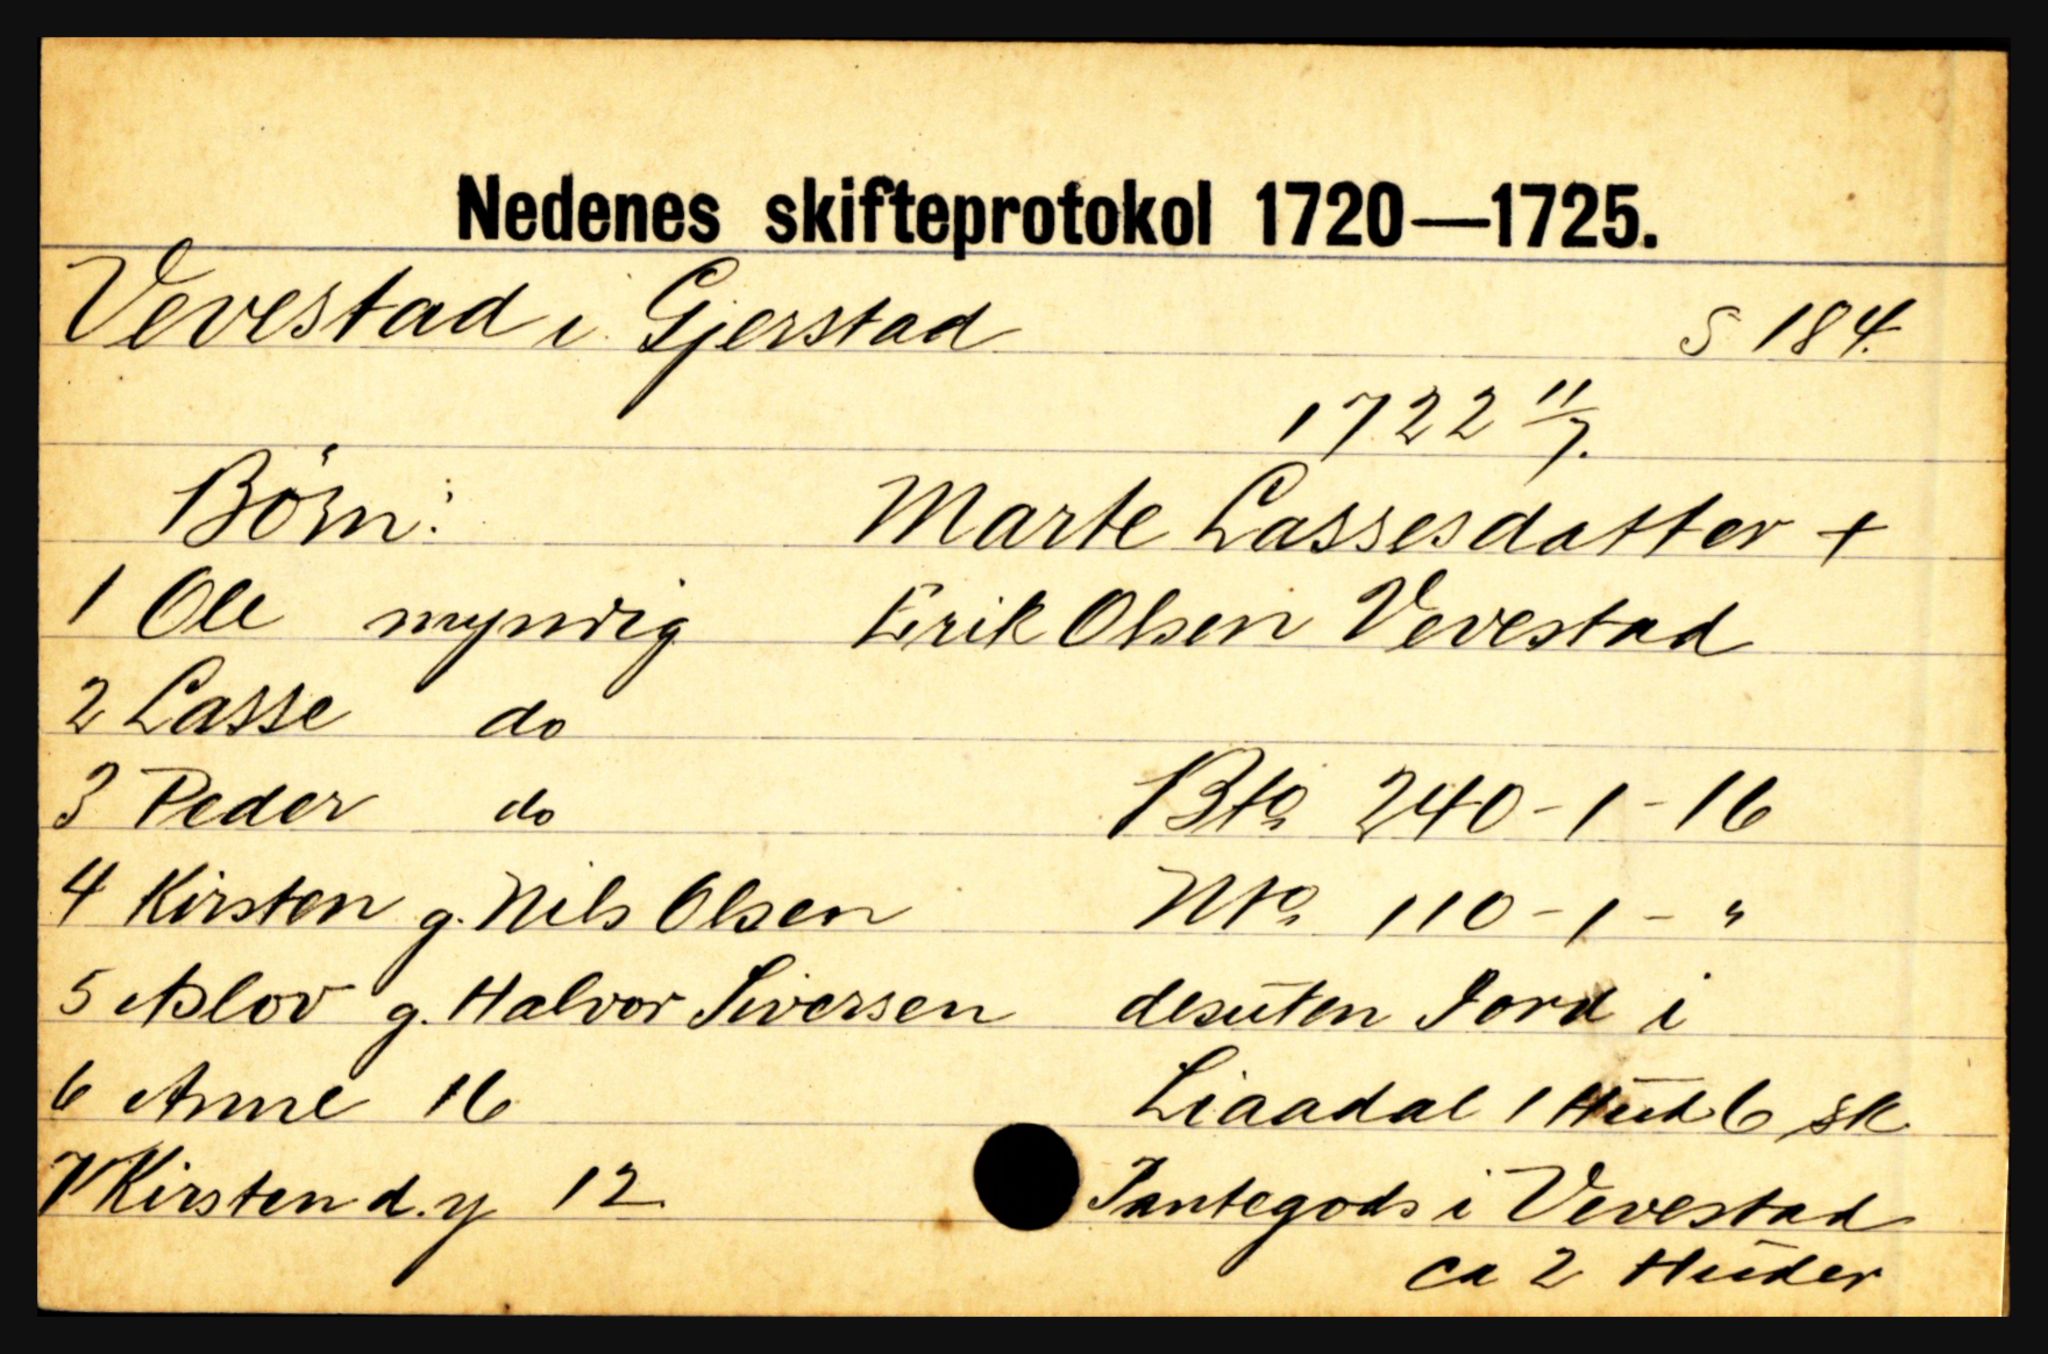 Nedenes skifteprotokol 1720—1725.
Vevestad i Gjerstad S 184.
1722 11/7.
Börn: Marte Lassesdatter +
1 Ole myndig Erik Olsen Vevestad
2 Lasse do
3 Peder do Bto 240-1-16
4 Kirsten g. Nils Olsen Nto 110-1-"
5 Aslov g. Halvor Siversen desuten Jord i
6 Anne 16 Liaadal 1 Hud 6 sk
7 Kirsten d.y 12 Pantegods i Vevestad
ca 2 Huder